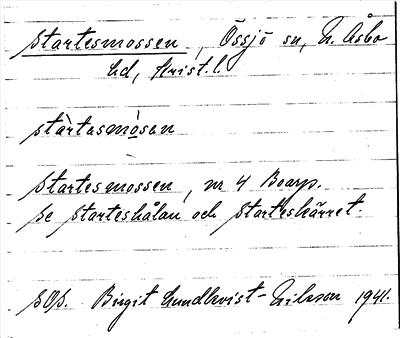 Startesmossen, Össjö sn, N. Åsbo
hd, Krist. l.
stàrtasmósen
Startesmossen, nr 4 Boarp.
Se Starteshålan och Starteskärret.
SOS. Birgit Lundkvist-Nilsson 1941.